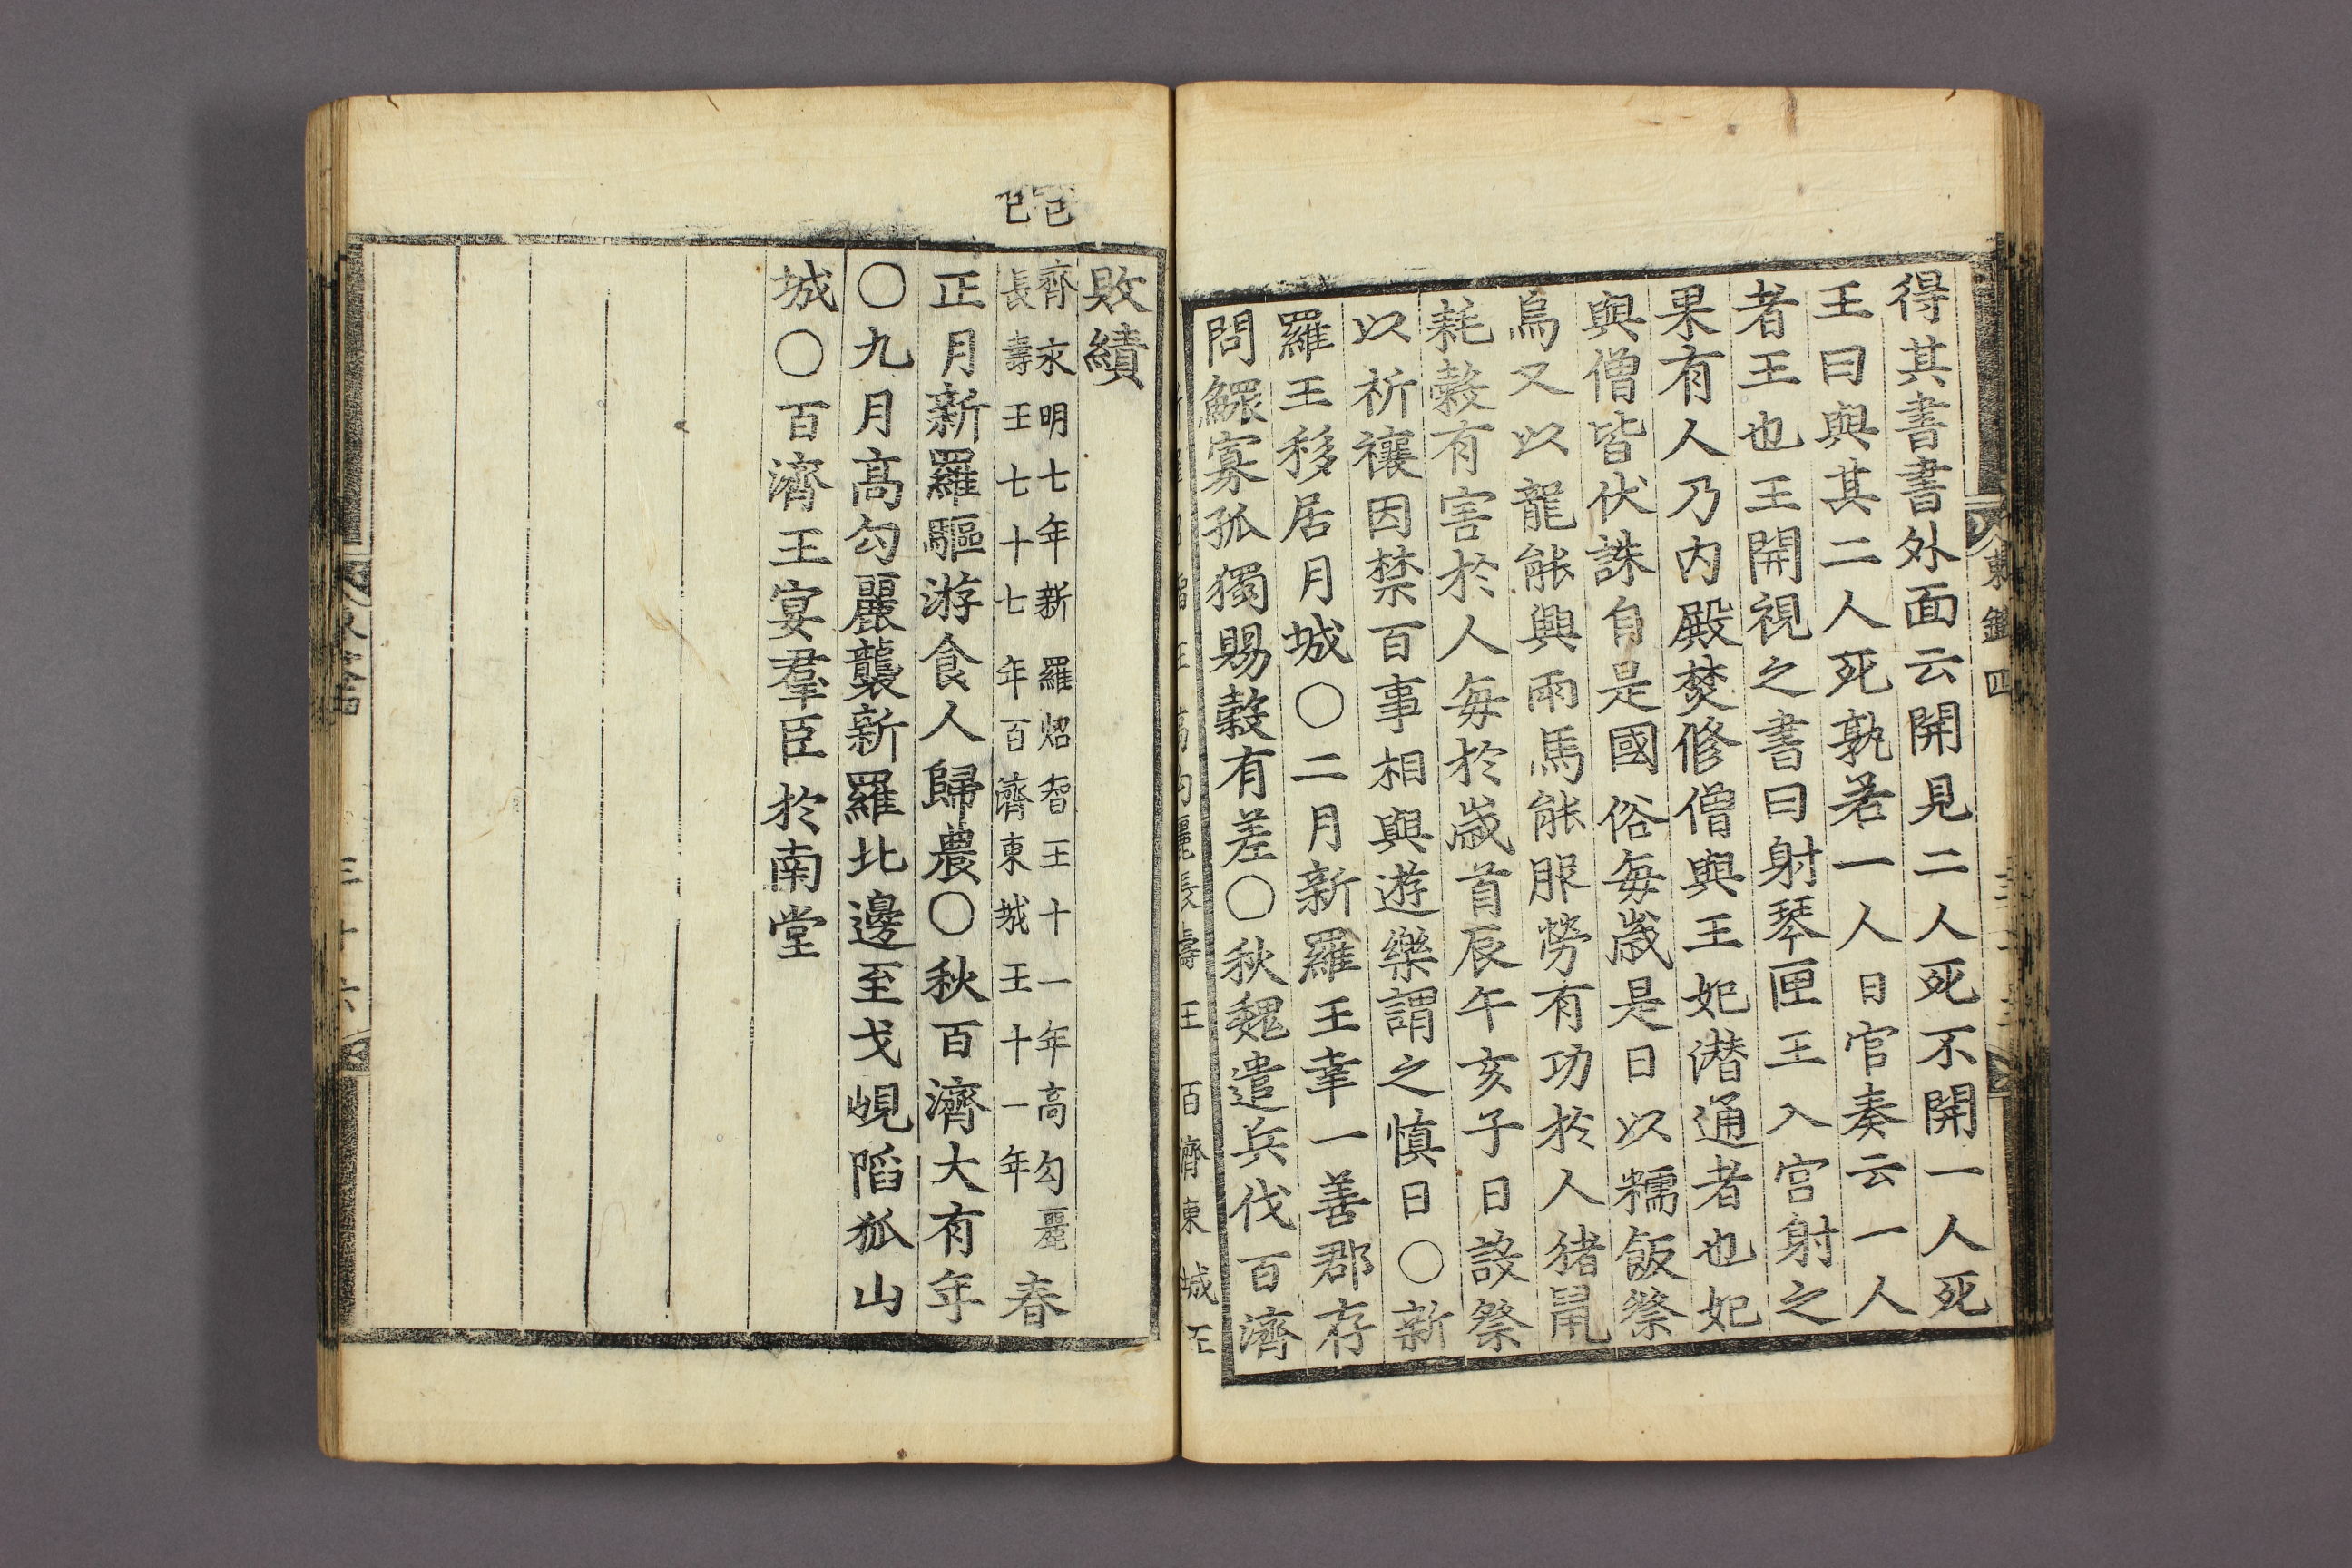 東鑑四
得其書書外面云開見二人死不開一人死
王曰與其二人死孰若一人日官奏云一人
者王也王開視之書曰射琴匣王入宮射之
果有人乃內殿焚修僧與王妃潛通者也妃
與僧皆伏誅自是國俗每歲是日以糯飯祭
烏又以龍能興雨馬能服勞有功於人猪鼠
耗穀有害於人每於歲首辰午亥子日設祭
以祈禳因禁百事相與遊樂謂之愼日〇新
羅王移居月城〇二月新羅王幸一善郡存
問鰥寡孤獨賜穀有差〇秋魏遣兵伐百濟
敗績
己巳
齊永明七年新羅炤智王十一年高勾麗
長壽王七十七年百濟東城王十一年
春
正月新羅驅游食人歸農〇秋百濟大有年
〇九月高勾麗襲新羅北邊至戈峴陷狐山
城〇百濟王宴羣臣於南堂
三十六